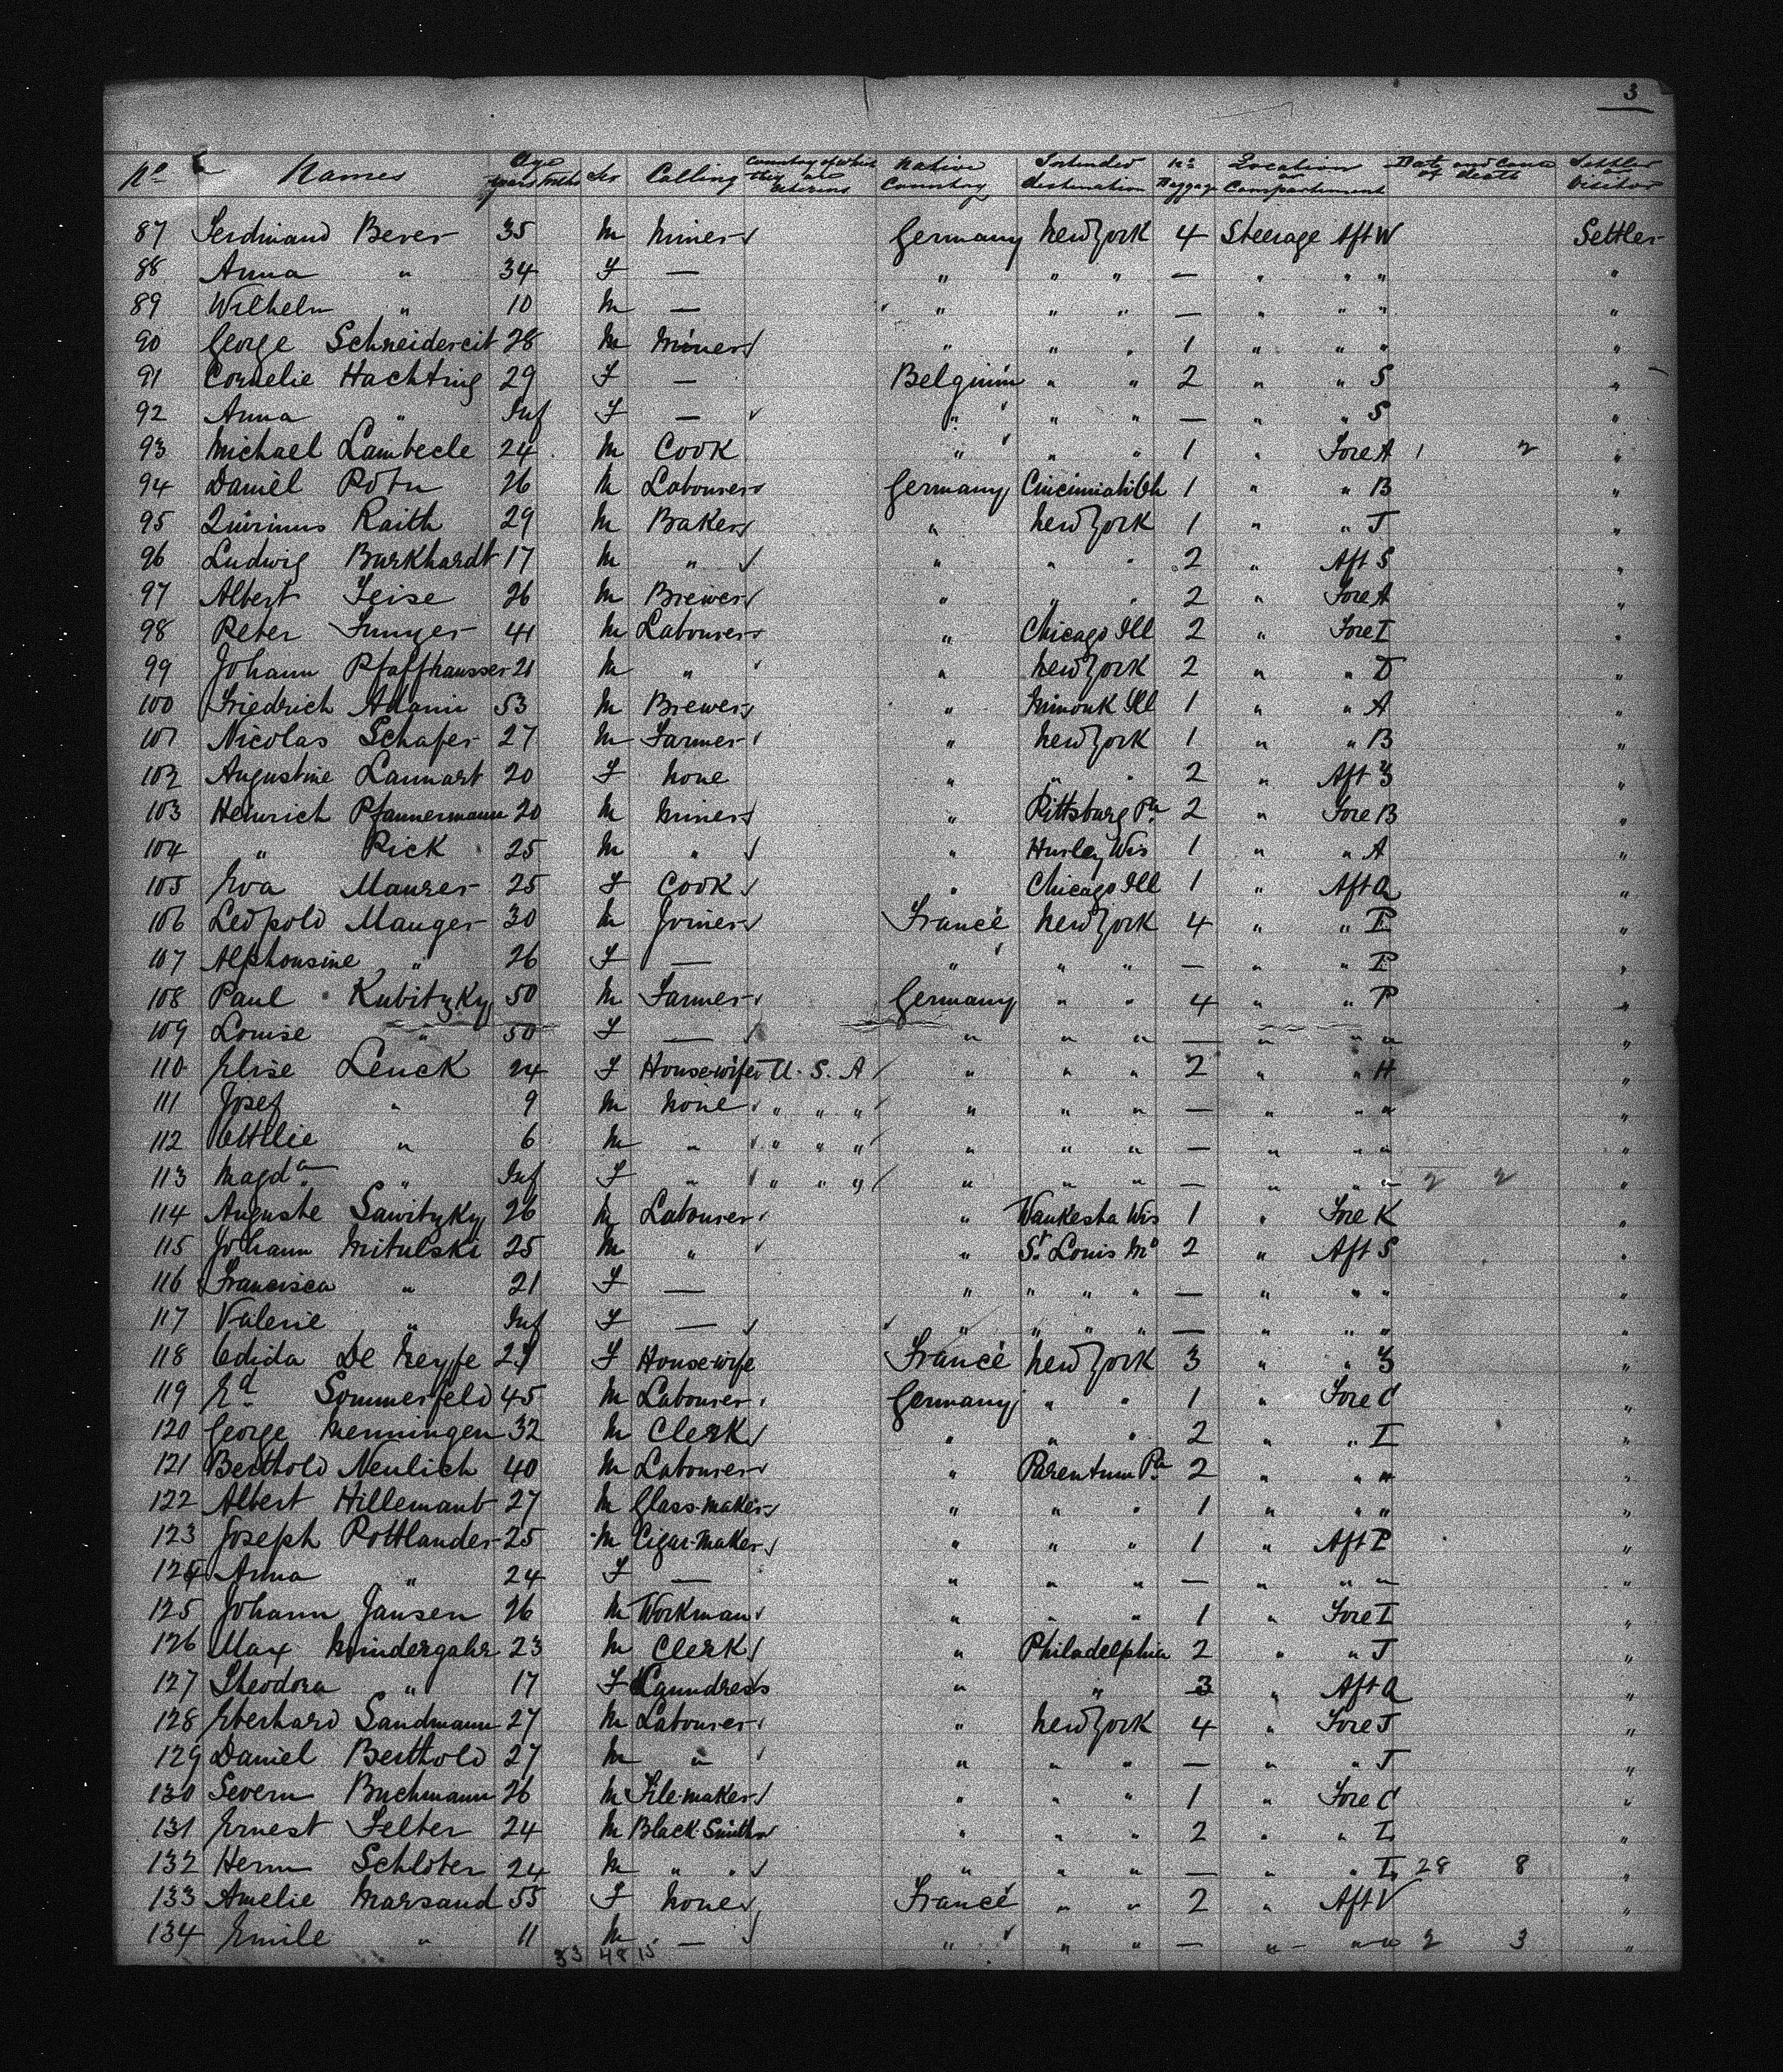 3
No Names Age years mths Sex Calling Country of which they are citizens Native Country Intended destination No Baggage Location or Compartment Date and Cause of death Settler or Visitor
87 Ferdinand Bever 35 M Miner Germany New York 4 Steerage Aft W Settler
88 Anna " 34 F — " " " — " " " "
89 Wilhelm " 10 M — " " " — " " " "
90 George Schneidereit 28 M Miner " " " 1 " " " "
91 Cornelie Hachting 29 F — Belgium " " 2 " " S "
92 Anna " Inf F — " " " — " " S "
93 Michael Lambecle 24 M Cook " " " 1 " Fore A 1 2 "
94 Daniel Roth 26 M Labourer Germany Cincinnati Oh 1 " " B "
95 Quirinus Raith 29 M Baker " New York 1 " " J "
96 Ludwig Burkhardt 17 M " " " " 2 " Aft S "
97 Albert Feise 26 M Brewer " " " 2 " Fore A "
98 Peter Funger 41 M Labourer " Chicago Ill 2 " Fore I "
99 Johann Pfaffhausser 21 M " " New York 2 " " D "
100 Friedrich Adami 53 M Brewer " Minonk Ill 1 " " A "
101 Nicolas Schafer 27 M Farmer " New York 1 " " B "
102 Augustine Lannart 20 F None " " " 2 " Aft Y "
103 Heinrich Pfannermann 20 M Miner " Pittsburg Pa 2 " Fore B "
104 " Rick 25 M " " Hurley Wis 1 " " A "
105 Eva Maurer 25 F Cook " Chicago Ill 1 " Aft Q "
106 Leopold Mauger 30 M Joiner France New York 4 " " P "
107 Alphonsine " 26 F — " " " — " " P "
108 Paul Kubitzky 50 M Farmer Germany " " 4 " " P "
109 Louise " 50 F — " " " — " " " "
110 Elise Lenck 24 F Housewife U. S. A " " " 2 " " H "
111 Josef " 9 M None " " " " " " — " " " "
112 Ottilie " 6 M " " " " " " " — " " " "
113 Magda " Inf F " " " " " " " — " " " 2 2 "
114 Auguste Sawitzky 26 M Labourer " Waukesha Wis 1 " Fore K "
115 Johann Mitulski 25 M " " St. Louis Mo 2 " Aft S "
116 Francisca " 21 F — " " " " — " " " "
117 Valerie " Inf F — " " " " — " " " "
118 Odida De Neyfe 27 F Housewife France New York 3 " " Y "
119 Ed. Sommerfeld 45 M Labourer Germany " " 1 " Fore C "
120 George Menningen 32 M Clerk " " " 2 " " I "
121 Berthold Neulich 40 M Labourer " Parentum Pa 2 " " " "
122 Albert Hillemant 27 M Glass-maker " " " 1 " " " "
123 Joseph Rottlander 25 M Cigar-maker " " " 1 " Aft P "
124 Anna " 24 F — " " " — " " " "
125 Johann Jansen 26 M Workman " " " 1 " Fore I "
126 Max Mindergahr 23 M Clerk " Philadelphia 2 " " J "
127 Theodora " 17 F Laundress " " 3 " Aft Q "
128 Eberhard Sandmann 27 M Labourer " New York 4 " Fore J "
129 Daniel Berthold 27 M " " " " — " " J "
130 Severin Buchmann 26 M File-maker " " " 1 " Fore C "
131 Ernest Felter 24 M Black Smith " " " 2 " " I "
132 Herm Schloter 24 M " " " " " — " " I 28 8 "
133 Amelie Marsand 55 F None France " " 2 " Aft V "
134 Emile " 11 M — " " " — " " " 2 3 "
33 48 15